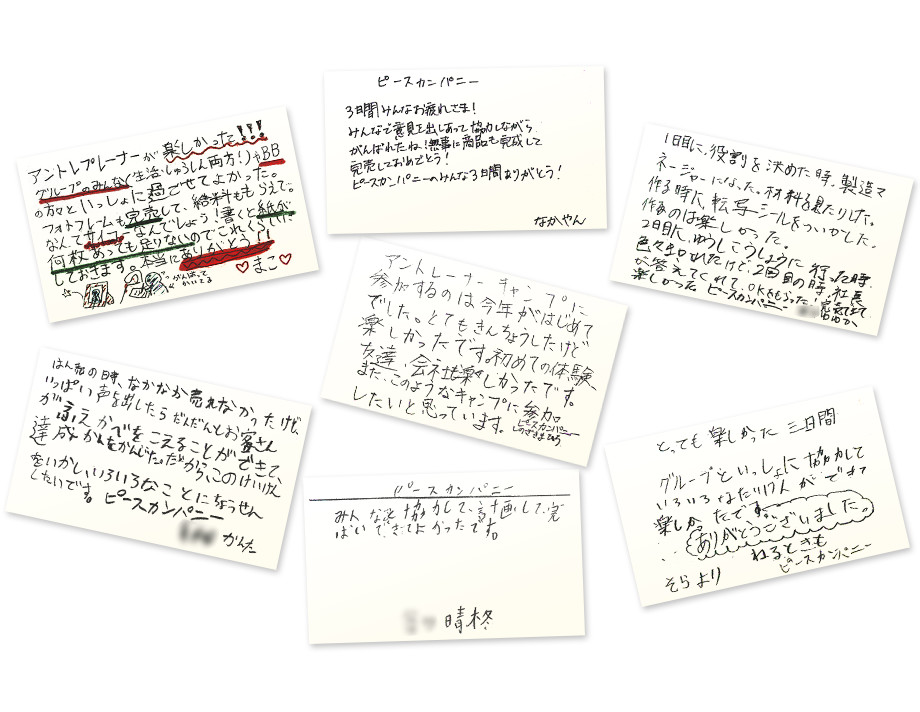 アントレプレーナーが楽しかった!!!
グループのみんな(生活・しゅうしん両方!)やBB
の方々といっしょに過ごせてよかった。
フォトフレームも完売して、給料ももらえて。
なんてサイコーなんでしょう!書くと紙が
何枚あっても足りないのでこれくらいに
しておきます。本当にありがとう!!
♡まこ♡
がんばって
かいてる
ピースカンパニー
3日間みんなお疲れさま!
みんなで意見を出しあって協力しながら
がんばれたね!無事に商品も完成して
完売しておめでとう!
ピースカンパニーのみんな3日間ありがとう!
なかやん
1日目に、役割を決めた時、製造マ
ネージャーになった。材料を見たりした。
作る時に、転写シールをついかした。
作るのは楽しかった。
2日目に、ゆうしこうしように行った時
色々言われたけど、2回目の時、社長
が答えてくれて、OKをもらった!完売できて
楽しかった ピースカンパニー
アントレーナーキャンプに
参加するのは今年が、はじめて
でした。とてもきんちょうしたけど
楽しかったです。初めての体験、
友達、会社も楽しかったです。
また、このようなキャンプに参加
したいと思っています。
ピースカンパニー
はん売の時、なかなか売れなかったけど、
いっぱい声を出したらだんだんとお客さん
がふえかべをこえることができて、
達成かんをかんじた。だから、このけいけん
をいかし、いろいろなことにちょうせん
したいです。
ピースカンパニー
かんた
ピースカンパニー
みんなと協力して、計画して、完
ばいできてよかったです。
晴柊
とっても楽しかった 三日間
グループといっしょに協力して
いろいろなたいけんができて
楽しかったです。
ありがとうございました。
ねるときも
ピースカンパニー
そらより